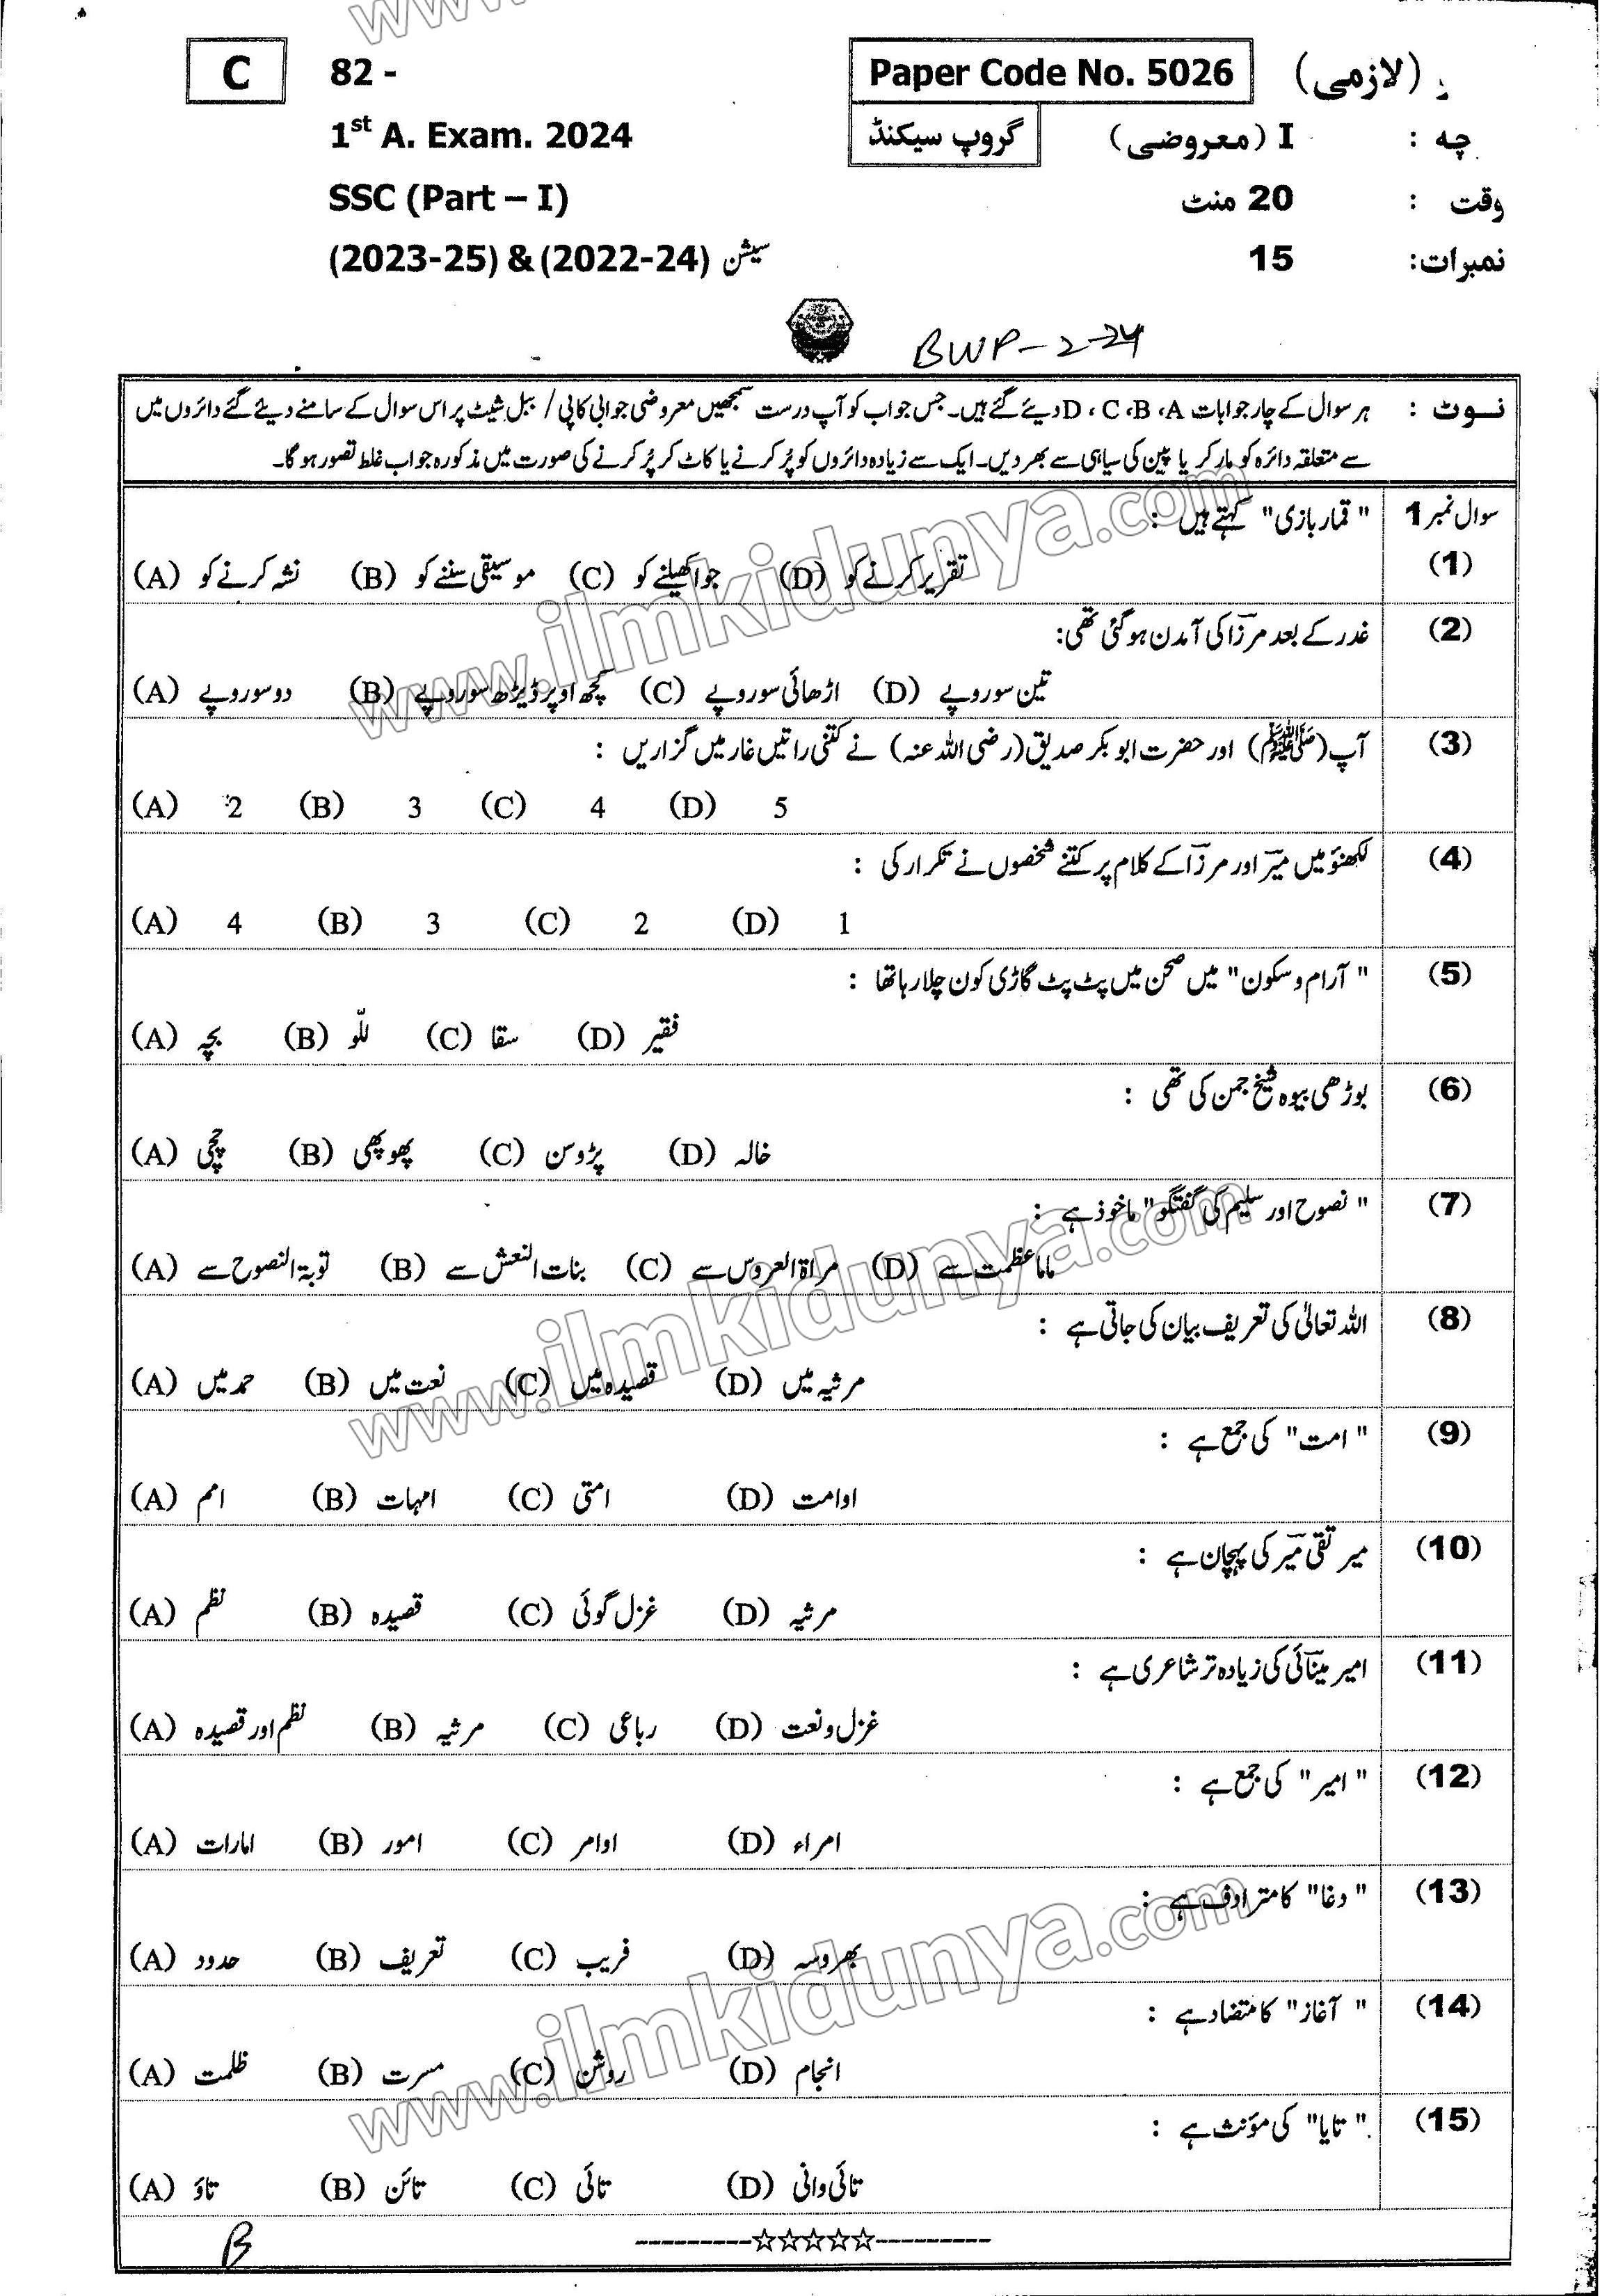 C
82 -
Paper Code No. 5026
(لازمی)
1st A. Exam. 2024
گروپ سیکنڈ
چہ : I (معروضی)
SSC (Part – I)
وقت : 20 منٹ
سیشن (2022-24) & (2023-25)
نمبرات: 15
BWP-2-24
نوٹ : ہر سوال کے چار جوابات A، B، C، D دیئے گئے ہیں۔ جس جواب کو آپ درست سمجھیں معروضی جوابی کاپی / ببل شیٹ پر اس سوال کے سامنے دیئے گئے دائروں میں
سے متعلقہ دائرہ کو مارکر یا پین کی سیاہی سے بھر دیں۔ ایک سے زیادہ دائروں کو پُر کرنے یا کاٹ کر پُر کرنے کی صورت میں مذکورہ جواب غلط تصور ہو گا۔
سوال نمبر 1 "قمار بازی" کہتے ہیں :
(1) (A) نشہ کرنے کو (B) موسیقی سننے کو (C) جوا کھیلنے کو (D) تقریر کرنے کو
(2) غدر کے بعد مرزا کی آمدن ہو گئی تھی:
(A) دو سو روپے (B) کچھ اوپر ڈیڑھ سو روپے (C) اڑھائی سو روپے (D) تین سو روپے
(3) آپ (ﷺ) اور حضرت ابو بکر صدیق (رضی اللہ عنہ) نے کتنی راتیں غار میں گزاریں :
(A) 2 (B) 3 (C) 4 (D) 5
(4) لکھنؤ میں میر اور مرزا کے کلام پر کتنے شخصوں نے تکرار کی :
(A) 4 (B) 3 (C) 2 (D) 1
(5) "آرام و سکون" میں صحن میں پٹ پٹ گاڑی کون چلا رہا تھا :
(A) بچہ (B) للّو (C) سقا (D) فقیر
(6) بوڑھی بیوہ شیخ جمن کی تھی :
(A) چچی (B) پھوپھی (C) پڑوسن (D) خالہ
(7) "نصوح اور سلیم کی گفتگو" ماخوذ ہے :
(A) توبۃ النصوح سے (B) بنات النعش سے (C) مراۃ العروس سے (D) ماما عظمت سے
(8) اللہ تعالیٰ کی تعریف بیان کی جاتی ہے :
(A) حمد میں (B) نعت میں (C) قصیدہ میں (D) مرثیہ میں
(9) "امت" کی جمع ہے :
(A) امم (B) امہات (C) امتی (D) اوامت
(10) میر تقی میر کی پہچان ہے :
(A) نظم (B) قصیدہ (C) غزل گوئی (D) مرثیہ
(11) امیر مینائی کی زیادہ تر شاعری ہے :
(A) نظم اور قصیدہ (B) مرثیہ (C) رباعی (D) غزل و نعت
(12) "امیر" کی جمع ہے :
(A) امارات (B) امور (C) اوامر (D) امراء
(13) "دغا" کا مترادف ہے :
(A) حدود (B) تعریف (C) فریب (D) بھروسہ
(14) "آغاز" کا متضاد ہے :
(A) ظلمت (B) مسرت (C) روشن (D) انجام
(15) "تایا" کی مؤنث ہے :
(A) تاؤ (B) تائن (C) تائی (D) تائی وانی
---------☆☆☆☆☆---------
B
www.ilmkidunya.com
www.ilmkidunya.com
www.ilmkidunya.com